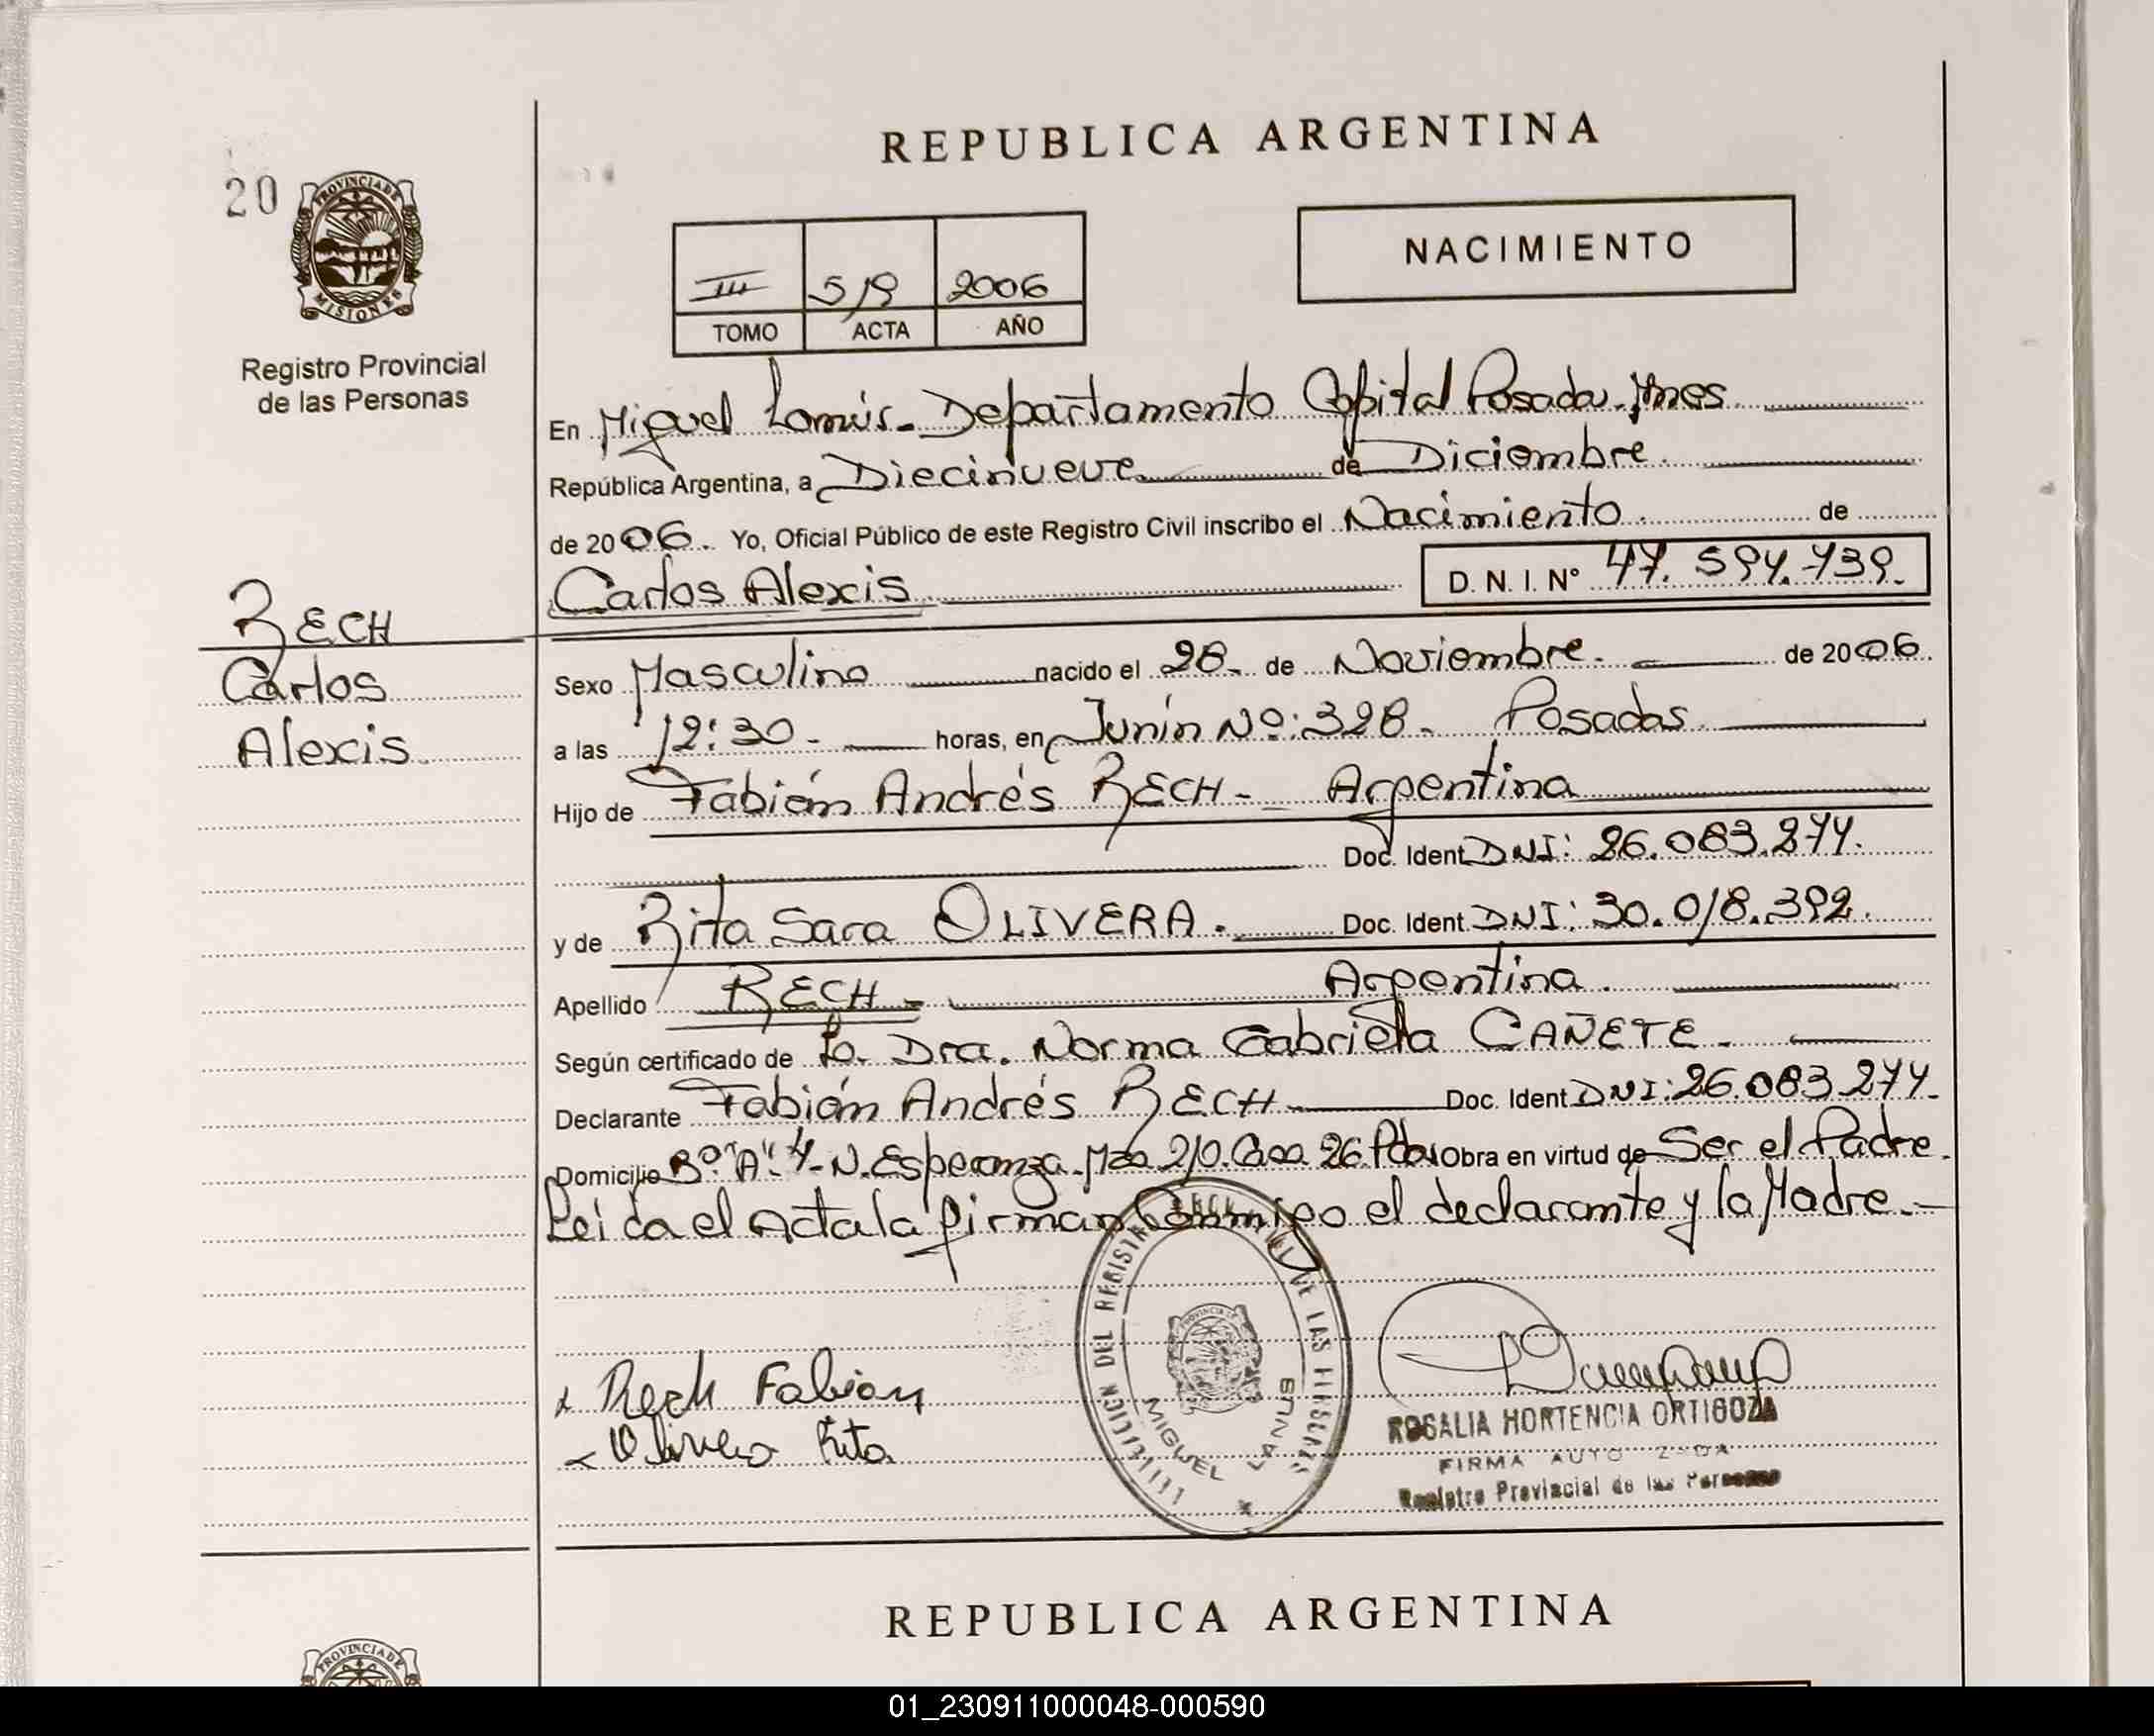 REPUBLICA ARGENTINA
20
PROVINCIA DE
MISIONES
NACIMIENTO
III 519 2006
TOMO ACTA AÑO
Registro Provincial
de las Personas
En Miguel Lanús - Departamento Capital Posadas. Mnes
República Argentina, a Diecinueve de Diciembre.
de 2006. Yo, Oficial Público de este Registro Civil inscribo el Nacimiento de
Carlos Alexis D. N. I. Nº 47.594.739.
RECH
Carlos
Alexis.
Sexo Masculino nacido el 28 de Noviembre. de 2006.
a las 12:30 - horas, en Junín Nº: 328. Posadas.
Hijo de Fabián Andrés RECH - Argentina
Doc. Ident DNI: 26.083.274.
y de Rita Sara OLIVERA. Doc. Ident. DNI: 30.018.392.
Apellido RECH - Argentina.
Según certificado de la. Dra. Norma Gabriela CAÑETE.
Declarante Fabián Andrés RECH - Doc. Ident DNI: 26.083.274.
Domicilio Bº "A" 4 - N. Esperanza. Mza 210. Casa 26. Pdas Obra en virtud de Ser el Padre.
Leida el Acta la firman Conmigo el declarante y la Madre. -
Rech Fabian
Olivera Rita
DEL REGISTRO DE LAS PERSONAS
MIGUEL LANUS
ROSALIA HORTENCIA ORTIGOZA
FIRMA AUTORIZADA
Registro Provincial de las Personas
REPUBLICA ARGENTINA
PROVINCIA DE
01_230911000048-000590